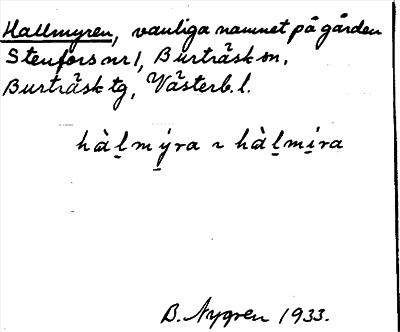 Hallmyren, vanliga namnet på gården
Stenfors nr 1, Burträsk sn,
Burträsk tg, Västerb. l.
hàḻmý̱ra ~ hàḻmi̱ra
B. Nygren 1933.